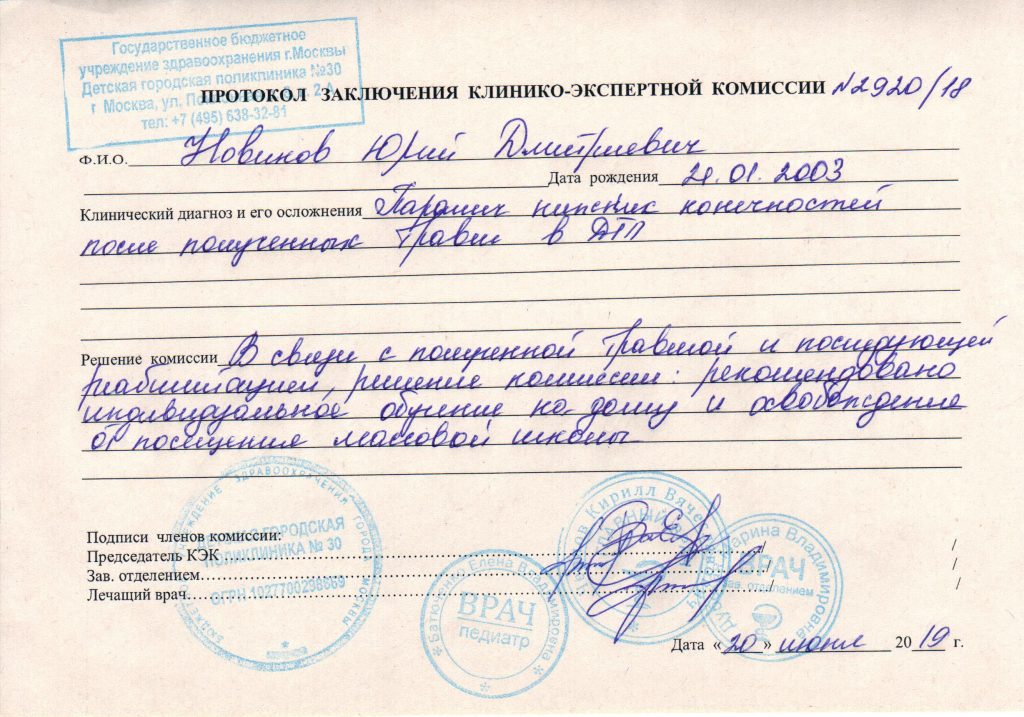 Государственное бюджетное
учреждение здравоохранения г.Москвы
Детская городская поликлиника №30
г Москва, ул.
тел: +7 (495) 638-32-81
ПРОТОКОЛ ЗАКЛЮЧЕНИЯ КЛИНИКО-ЭКСПЕРТНОЙ КОМИССИИ №2920/18
Ф.И.О. Новиков Юрий Дмитриевич
Дата рождения 21.01.2003
Клинический диагноз и его осложнения Паралич нижних конечностей
после полученных травм в ДТП
Решение комиссии В связи с полученной травмой и последующей
реабилитацией, решение комиссии: рекомендовано
индивидуальное обучение на дому и освобождение
от посещения массовой школы
ДЕТСКАЯ ГОРОДСКАЯ
ПОЛИКЛИНИКА № 30
Подписи членов комиссии:
Председатель КЭК / /
Зав. отделением / /
Лечащий врач / /
Батюхина Елена Владимировна
ВРАЧ
педиатр
Кирилл
Марина Владимировна
ВРАЧ
зав. отделением
Дата «20» июня 2019 г.